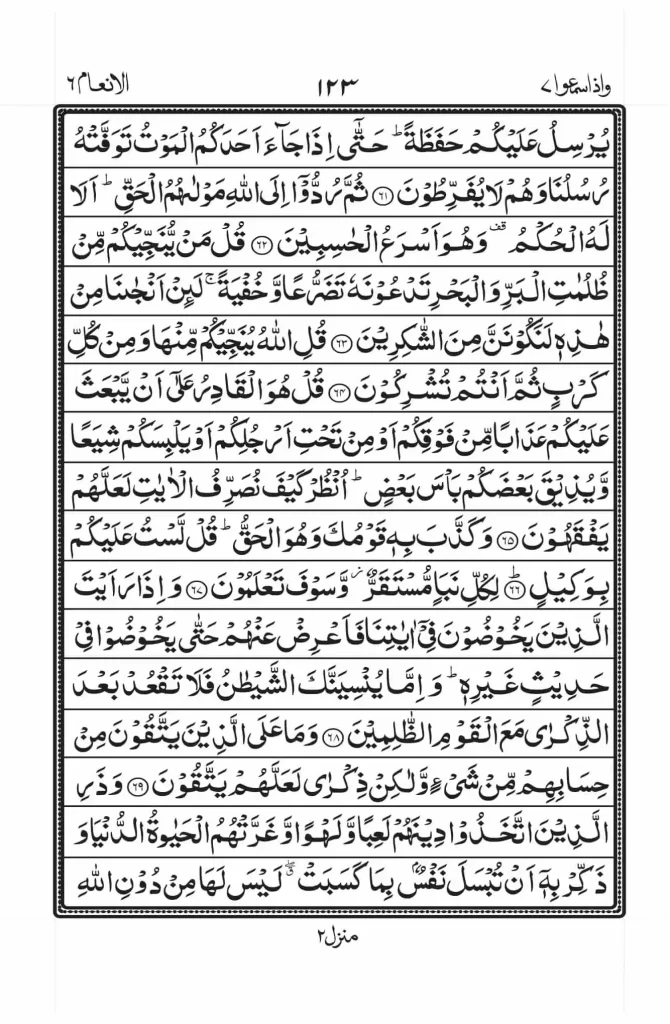 واذاسمعوا۷ ۱۲۳ الانعام۶
يُرْسِلُ عَلَيْكُمْ حَفَظَةً ؕ حَتّٰۤى اِذَا جَآءَ اَحَدَكُمُ الْمَوْتُ تَوَفَّتْهُ
رُسُلُنَا وَهُمْ لَا يُفَرِّطُوْنَ ﴿۶۱﴾ ثُمَّ رُدُّوْۤا اِلَى اللّٰهِ مَوْلٰىهُمُ الْحَقِّ ؕ اَلَا
لَهُ الْحُكْمُ قف وَهُوَ اَسْرَعُ الْحٰسِبِيْنَ ﴿۶۲﴾ قُلْ مَنْ يُّنَجِّيْكُمْ مِّنْ
ظُلُمٰتِ الْبَرِّ وَالْبَحْرِ تَدْعُوْنَهٗ تَضَرُّعًا وَّخُفْيَةً ۚ لَئِنْ اَنْجٰىنَا مِنْ
هٰذِهٖ لَنَكُوْنَنَّ مِنَ الشّٰكِرِيْنَ ﴿۶۳﴾ قُلِ اللّٰهُ يُنَجِّيْكُمْ مِّنْهَا وَمِنْ كُلِّ
كَرْبٍ ثُمَّ اَنْتُمْ تُشْرِكُوْنَ ﴿۶۴﴾ قُلْ هُوَ الْقَادِرُ عَلٰۤى اَنْ يَّبْعَثَ
عَلَيْكُمْ عَذَابًا مِّنْ فَوْقِكُمْ اَوْ مِنْ تَحْتِ اَرْجُلِكُمْ اَوْ يَلْبِسَكُمْ شِيَعًا
وَّيُذِيْقَ بَعْضَكُمْ بَاْسَ بَعْضٍ ؕ اُنْظُرْ كَيْفَ نُصَرِّفُ الْاٰيٰتِ لَعَلَّهُمْ
يَفْقَهُوْنَ ﴿۶۵﴾ وَكَذَّبَ بِهٖ قَوْمُكَ وَهُوَ الْحَقُّ ؕ قُلْ لَّسْتُ عَلَيْكُمْ
بِوَكِيْلٍ ﴿۶۶﴾ؕ لِكُلِّ نَبَاٍ مُّسْتَقَرٌّ ز وَّسَوْفَ تَعْلَمُوْنَ ﴿۶۷﴾ وَاِذَا رَاَيْتَ
الَّذِيْنَ يَخُوْضُوْنَ فِىْۤ اٰيٰتِنَا فَاَعْرِضْ عَنْهُمْ حَتّٰى يَخُوْضُوْا فِىْ
حَدِيْثٍ غَيْرِهٖ ؕ وَاِمَّا يُنْسِيَنَّكَ الشَّيْطٰنُ فَلَا تَقْعُدْ بَعْدَ
الذِّكْرٰى مَعَ الْقَوْمِ الظّٰلِمِيْنَ ﴿۶۸﴾ وَمَا عَلَى الَّذِيْنَ يَتَّقُوْنَ مِنْ
حِسَابِهِمْ مِّنْ شَىْءٍ وَّلٰكِنْ ذِكْرٰى لَعَلَّهُمْ يَتَّقُوْنَ ﴿۶۹﴾ وَذَرِ
الَّذِيْنَ اتَّخَذُوْا دِيْنَهُمْ لَعِبًا وَّلَهْوًا وَّغَرَّتْهُمُ الْحَيٰوةُ الدُّنْيَا وَ
ذَكِّرْ بِهٖۤ اَنْ تُبْسَلَ نَفْسٌۢ بِمَا كَسَبَتْ ۖق لَيْسَ لَهَا مِنْ دُوْنِ اللّٰهِ
منزل۲